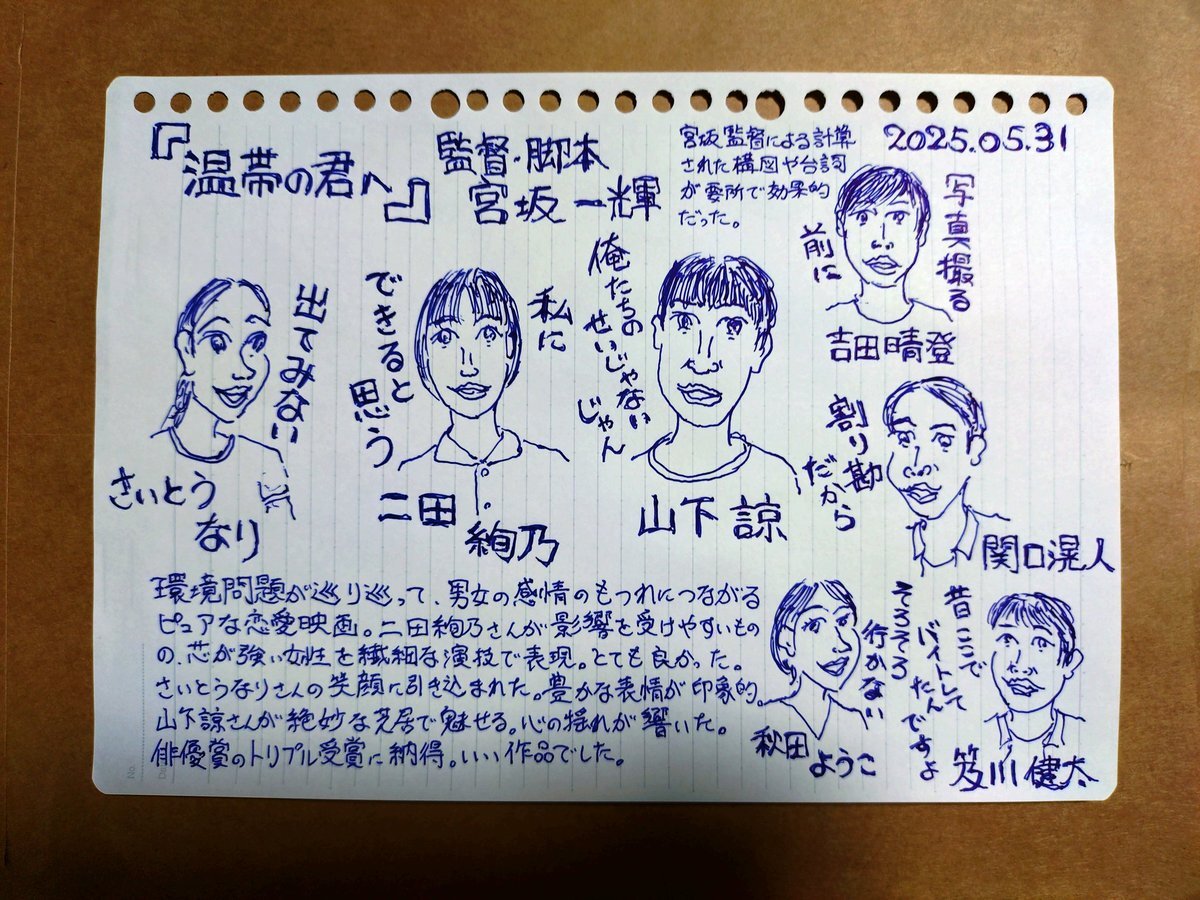 『温帯の君へ』
監督・脚本
宮坂一輝
宮坂監督による計算
された構図や台詞
が要所で効果的
だった。
2025.05.31
写真撮る
前に
吉田晴登
出てみない
さいとう
なり
私に
できると
思う
二田
絢乃
俺たちの
せいじゃない
じゃん
山下諒
割り勘
だから
関口滉人
環境問題が巡り巡って、男女の感情のもつれにつながる
ピュアな恋愛映画。二田絢乃さんが影響を受けやすいもの
の、芯が強い女性を繊細な演技で表現。とても良かった。
さいとうなりさんの笑顔に引き込まれた。豊かな表情が印象的。
山下諒さんが絶妙な芝居で魅せる。心の揺れが響いた。
俳優賞のトリプル受賞に納得。いい作品でした。
そろそろ
行かない
秋田
ようこ
昔ここで
バイトして
たんですよ
笈川健太
No.